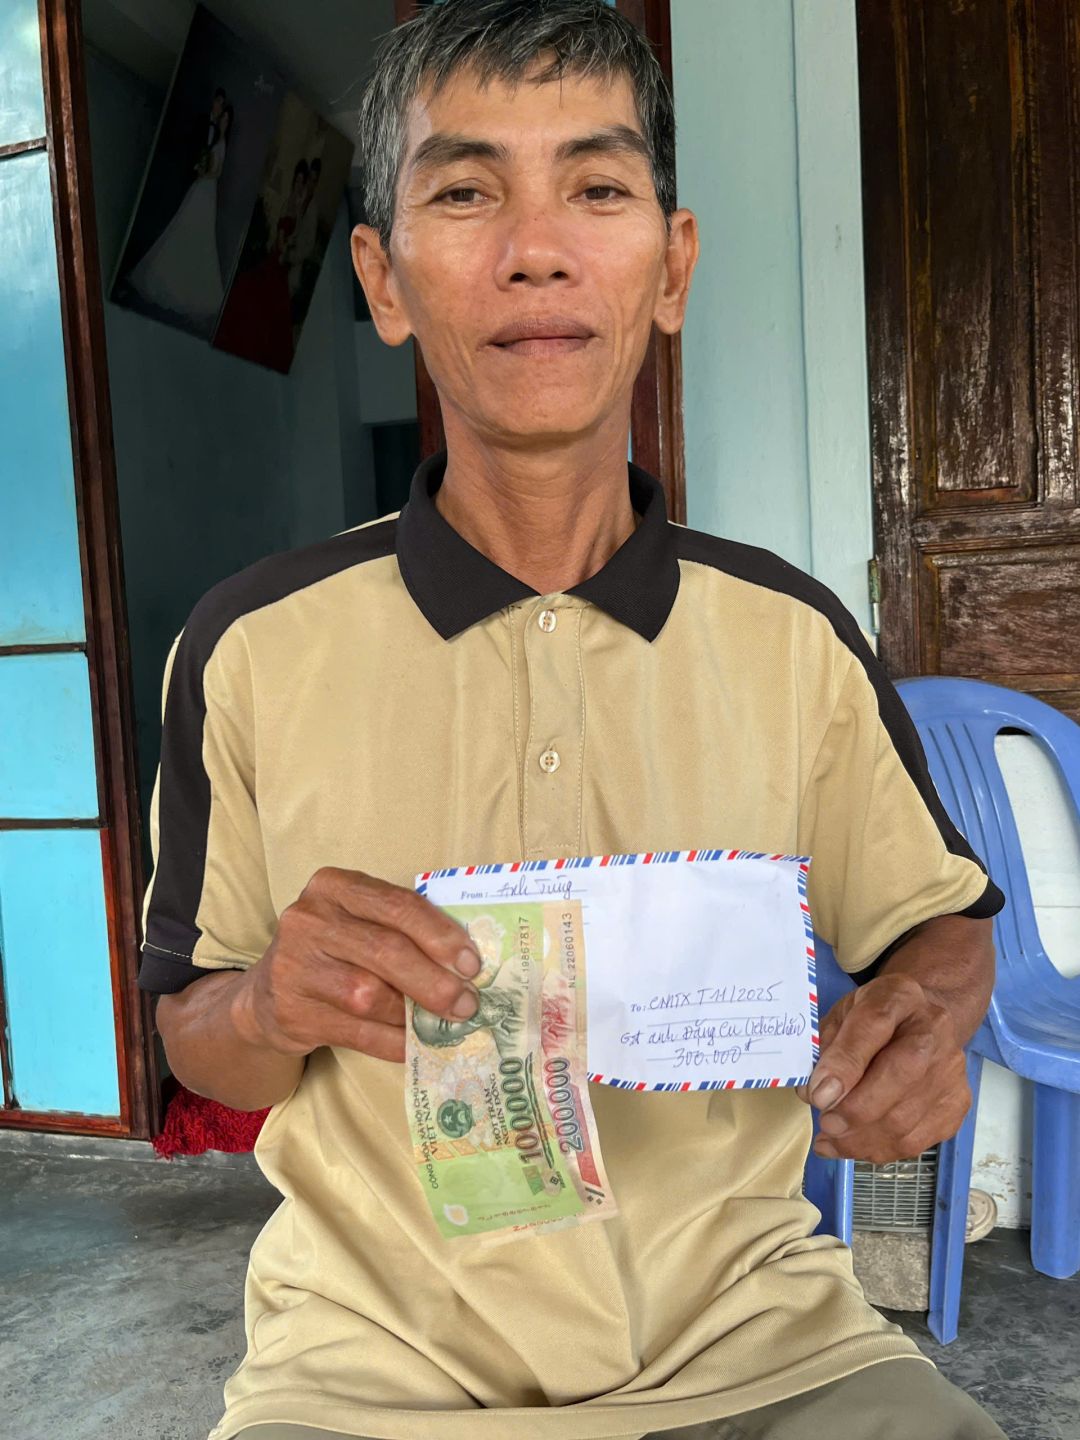 From: Anh Tùng
To: CMTX T 11/2025
Gđ anh Đặng Cu (khó khăn)
300.000đ
NL 19867817
NL 22060143
CỘNG HÒA XÃ HỘI CHỦ NGHĨA
VIỆT NAM
MỘT TRĂM
NGHÌN ĐỒNG
100000
200000